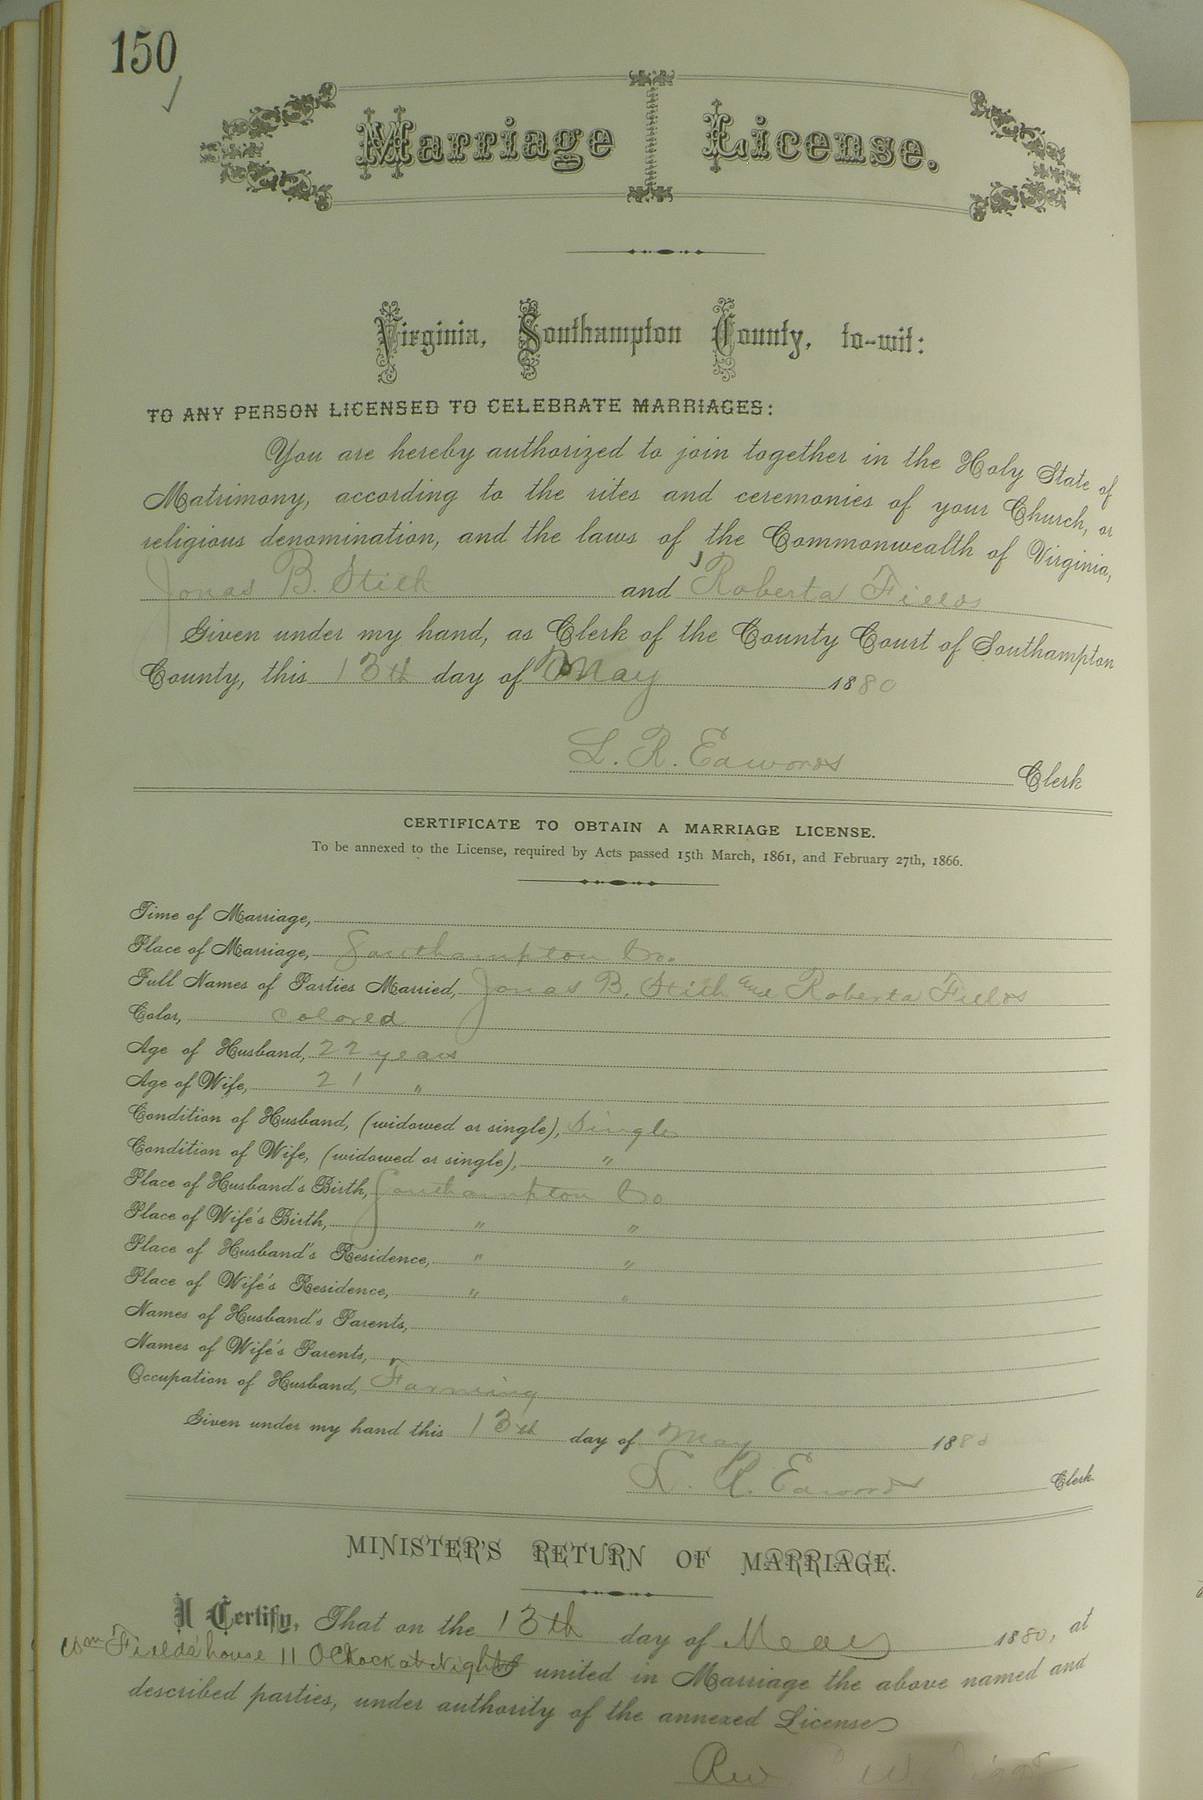 150
Marriage License.
Virginia, Southampton County, to-wit:
TO ANY PERSON LICENSED TO CELEBRATE MARRIAGES:
You are hereby authorized to join together in the Holy State of
Matrimony, according to the rites and ceremonies of your Church, or
religious denomination, and the laws of the Commonwealth of Virginia,
Jonas B. Stith and Roberta Fields
Given under my hand, as Clerk of the County Court of Southampton
County, this 13th day of May 1880
L. R. Edwards Clerk
CERTIFICATE TO OBTAIN A MARRIAGE LICENSE.
To be annexed to the License, required by Acts passed 15th March, 1861, and February 27th, 1866.
Time of Marriage,
Place of Marriage, Southampton Co.
Full Names of Parties Married, Jonas B. Stith and Roberta Fields
Color, colored
Age of Husband, 22 years
Age of Wife, 21 "
Condition of Husband, (widowed or single), Single
Condition of Wife, (widowed or single), "
Place of Husband's Birth, Southampton Co
Place of Wife's Birth, " "
Place of Husband's Residence, " "
Place of Wife's Residence, " "
Names of Husband's Parents,
Names of Wife's Parents,
Occupation of Husband, Farming
Given under my hand this 13th day of May 1880
L. R. Edwards Clerk.
MINISTER'S RETURN OF MARRIAGE.
I Certify, That on the 13th day of May 1880, at
Wm Fields' house 11 OClock at Night I united in Marriage the above named and
described parties, under authority of the annexed License
Rev